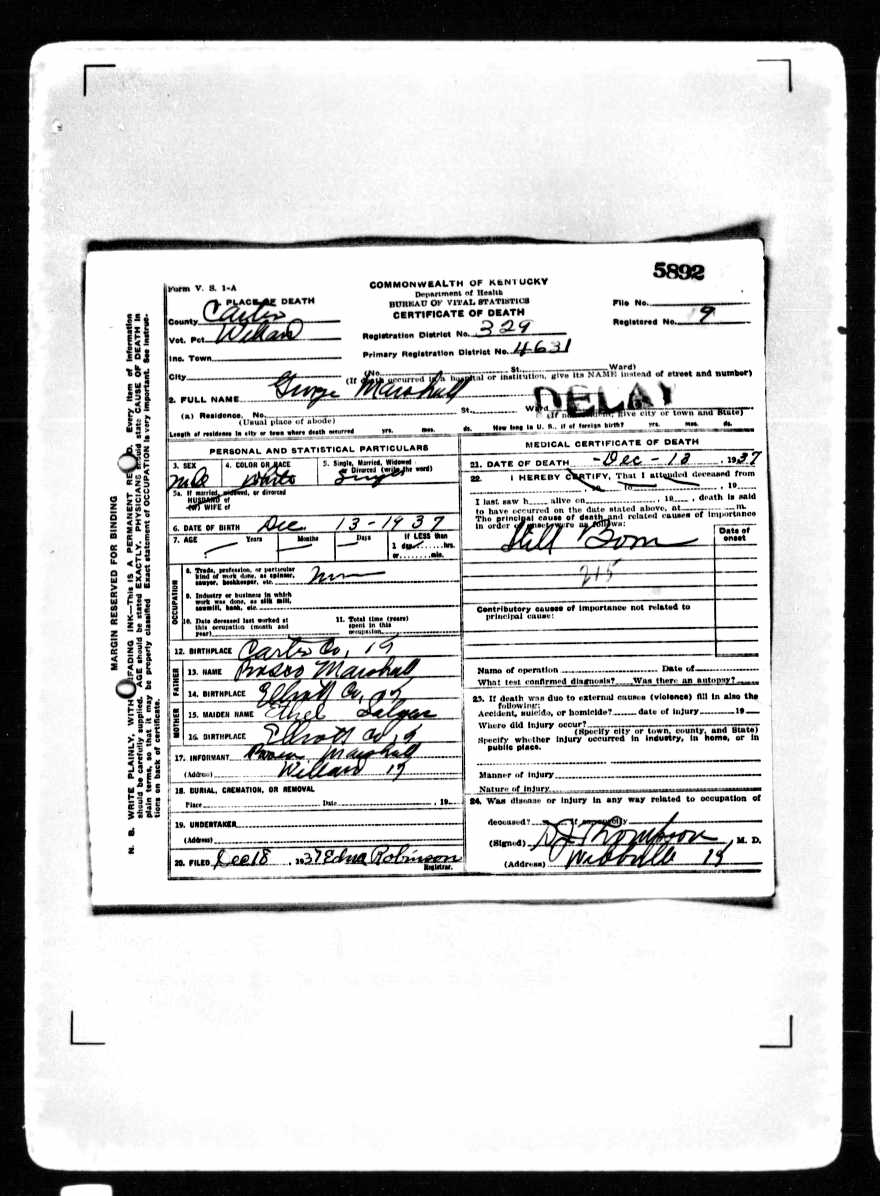 5892
Form V. S. 1-A
COMMONWEALTH OF KENTUCKY
Department of Health
BUREAU OF VITAL STATISTICS
CERTIFICATE OF DEATH
1 PLACE OF DEATH
County Carter
Vot. Pct. Willard
Inc. Town
City
File No.
Registered No. 9
Registration District No. 329
Primary Registration District No. 4631
(No. St. Ward)
(If death occurred in a hospital or institution, give its NAME instead of street and number)
2. FULL NAME George Marshall
DELAY
(a) Residence. No. St. Ward
(Usual place of abode) (If nonresident, give city or town and State)
Length of residence in city or town where death occurred yrs. mos. ds. How long in U. S., if of foreign birth? yrs. mos. ds.
PERSONAL AND STATISTICAL PARTICULARS
3. SEX Male
4. COLOR OR RACE White
5. Single, Married, Widowed or Divorced (write the word) Single
5a. If married, widowed, or divorced
HUSBAND of
(or) WIFE of
6. DATE OF BIRTH Dec 13-1937
7. AGE Years Months Days If LESS than
1 day, hrs.
or min.
OCCUPATION
8. Trade, profession, or particular
kind of work done, as spinner,
sawyer, bookkeeper, etc.
9. Industry or business in which
work was done, as silk mill,
sawmill, bank, etc.
10. Date deceased last worked at
this occupation (month and
year)
11. Total time (years)
spent in this
occupation
12. BIRTHPLACE Carter Co, Ky
FATHER
13. NAME Marshall
14. BIRTHPLACE Elliott Co, Ky
MOTHER
15. MAIDEN NAME Ethel
16. BIRTHPLACE Elliott Co, Ky
17. INFORMANT Marshall
(Address) Willard Ky
18. BURIAL, CREMATION, OR REMOVAL
Place Date , 19
19. UNDERTAKER
(Address)
20. FILED Dec 18, 1937 Edna Robinson
Registrar.
MEDICAL CERTIFICATE OF DEATH
21. DATE OF DEATH -Dec-13, 1937
22. I HEREBY CERTIFY, That I attended deceased from
, 19 to , 19
I last saw h alive on , 19 , death is said
to have occurred on the date stated above, at m.
The principal cause of death and related causes of importance
in order of onset were as follows:
Date of
onset
Still Born
215
Contributory causes of importance not related to
principal cause:
Name of operation Date of
What test confirmed diagnosis? Was there an autopsy?
23. If death was due to external causes (violence) fill in also the
following:
Accident, suicide, or homicide? date of injury 19
Where did injury occur?
(Specify city or town, county, and State)
Specify whether injury occurred in industry, in home, or in
public place.
Manner of injury
Nature of injury
24. Was disease or injury in any way related to occupation of
deceased? If so, specify
(Signed) Thompson M. D.
(Address) Webbville Ky
MARGIN RESERVED FOR BINDING
N. B. WRITE PLAINLY, WITH UNFADING INK—This IS A PERMANENT RECORD. Every item of information
should be carefully supplied. AGE should be stated EXACTLY. PHYSICIANS should state CAUSE OF DEATH in
plain terms, so that it may be properly classified. Exact statement of OCCUPATION is very important. See instruc-
tions on back of certificate.